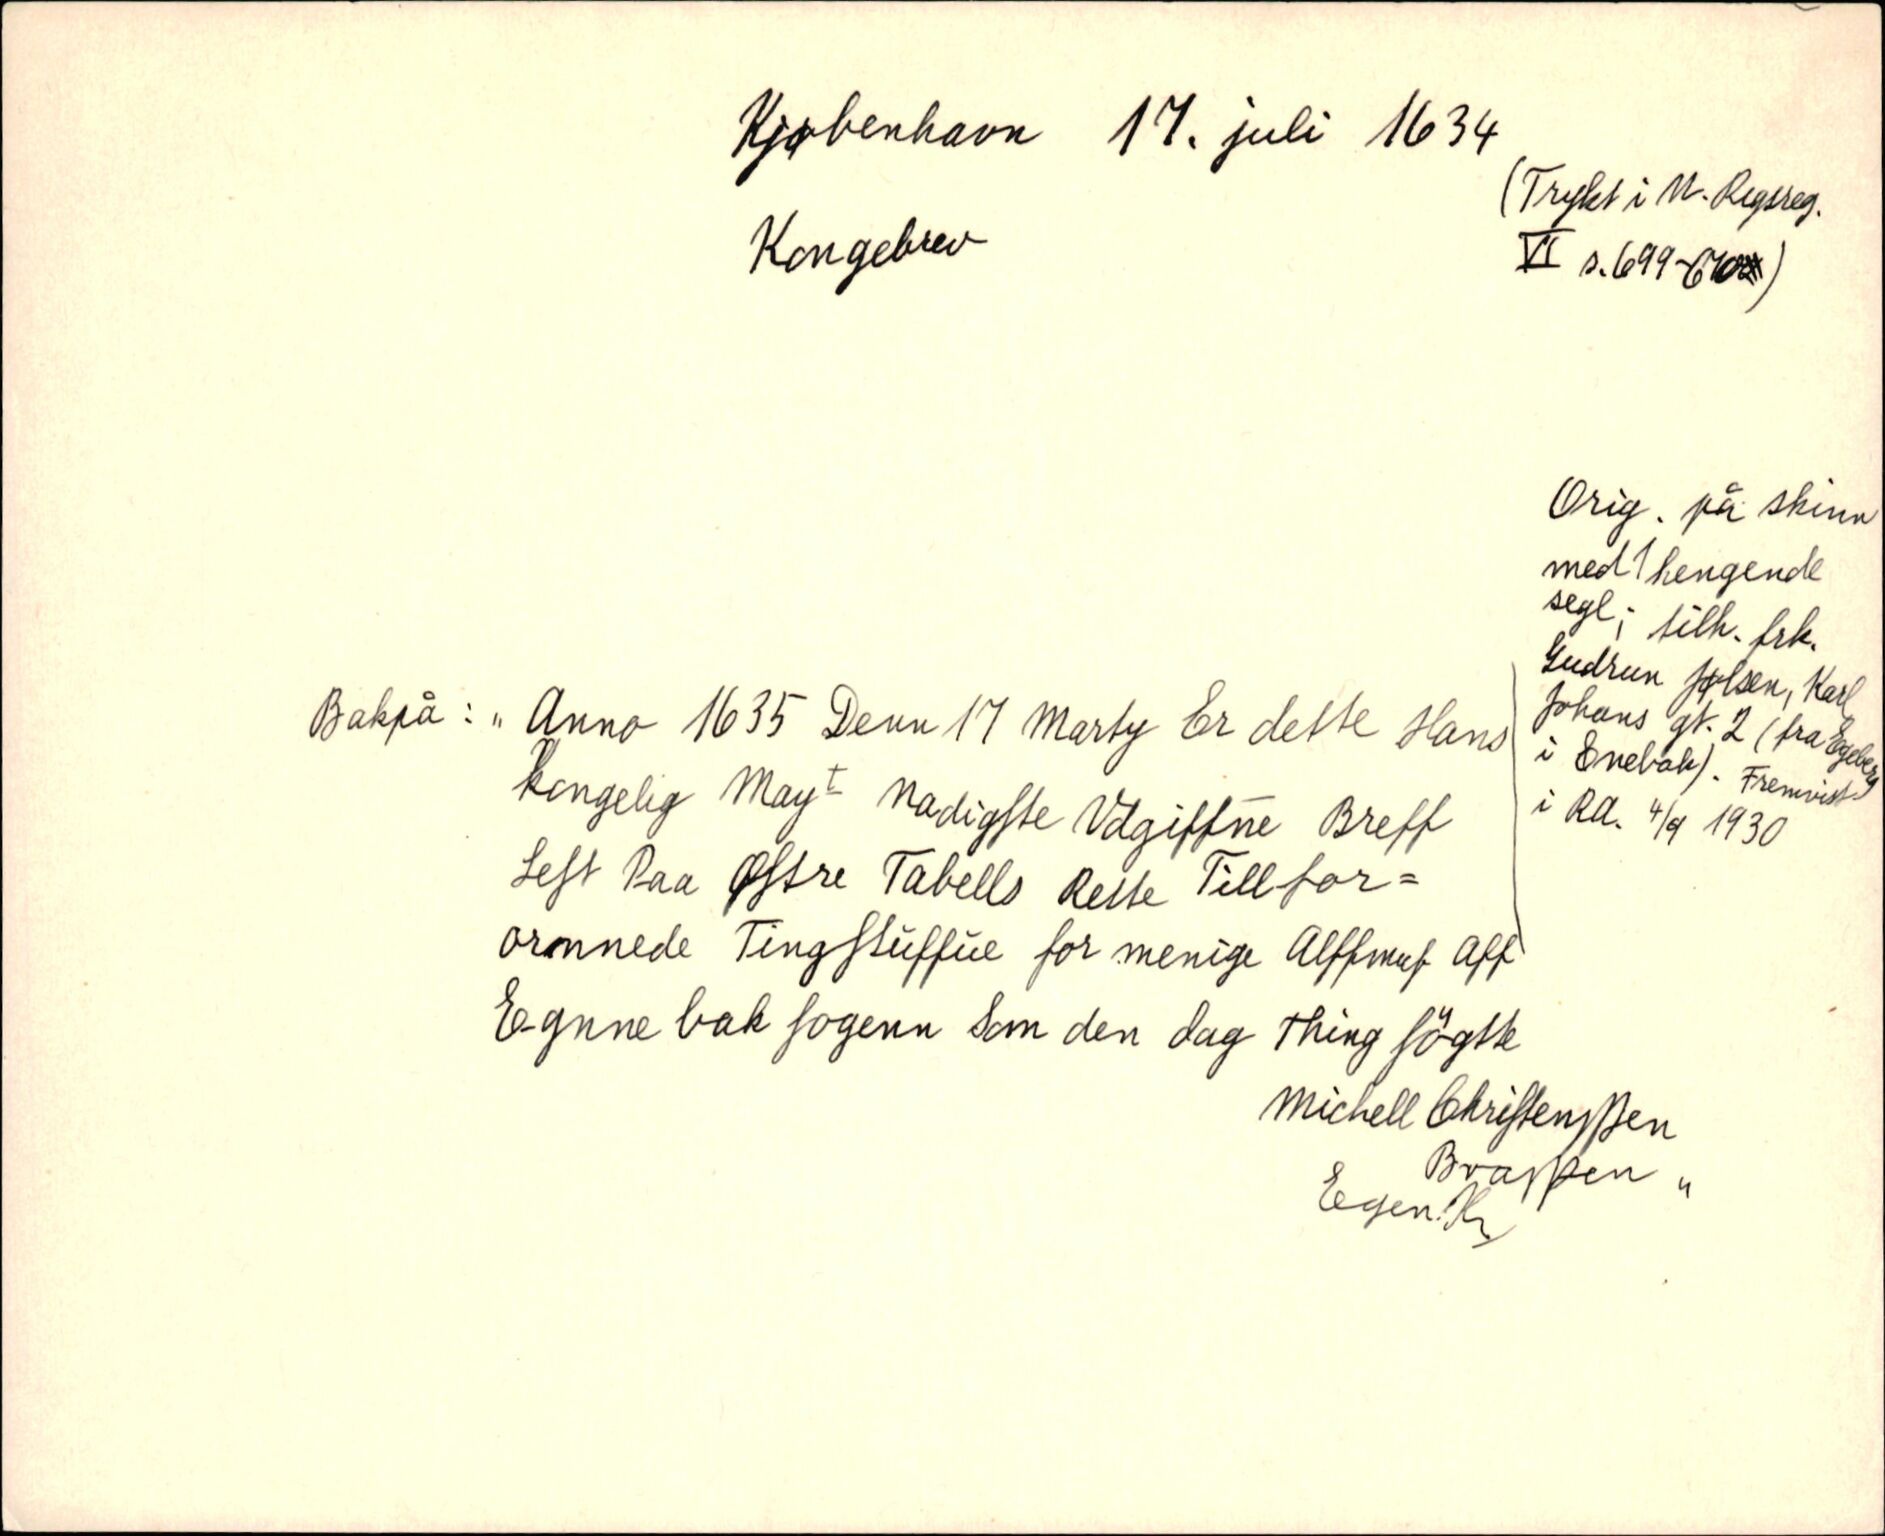 Kjøbenhavn 17. juli 1634
(Trykt i N. Rigsreg.
VI s. 699-670)
Kongebrev
Orig. på skinn
med 1 hengende
segl; tilh. frk.
Gudrun Jølsen, Karl
Johans gt. 2 (fra Egeberg
i Enebak). Fremvist
i RA. 4/9 1930
Bakpå: „Anno 1635 Denn 17 Marty Er dette Hans
kongelig Mayt Nadigste Vdgiffne Breff
Lest Paa Østre Tabells Rette Tillfor=
ornnede Tingstuffue for menige Allmuf Aff
Egnne bak sogenn Som den dag Thing sögtte
Michell Christenssen
Brassen „
Egen H